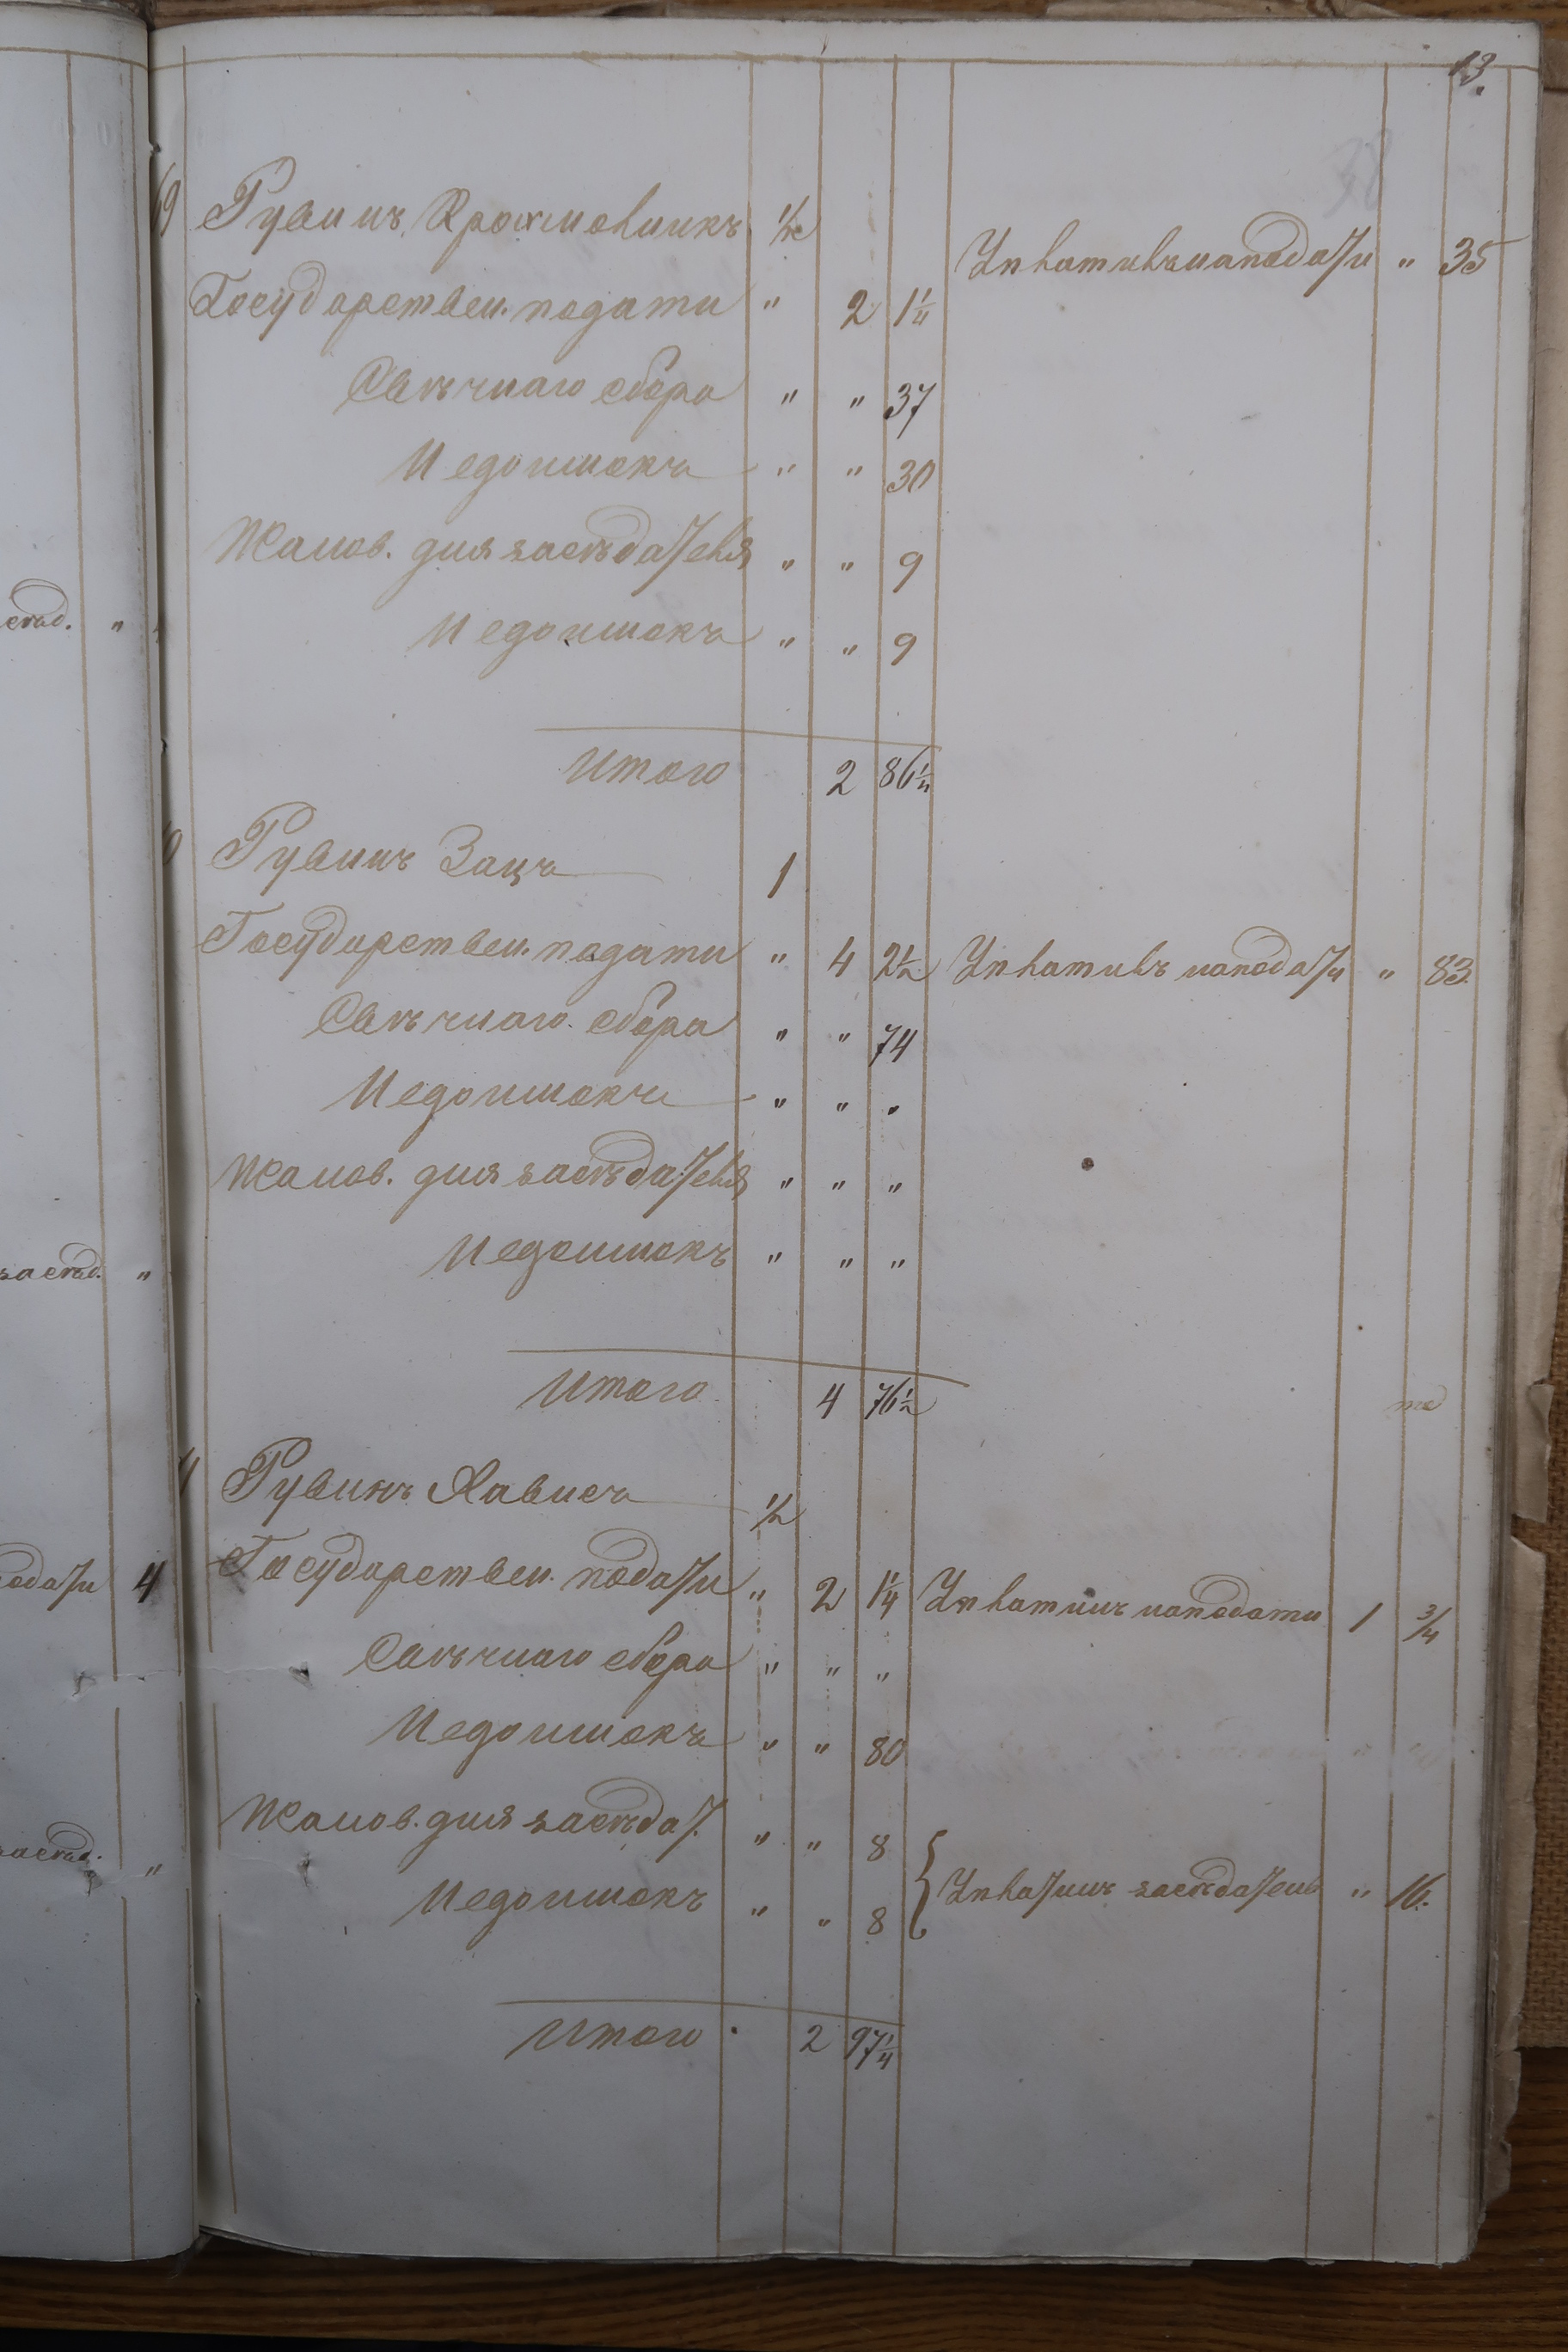 13.
38
69 Рувинъ Крохмольникъ 1/2
Государствен. подати " 2 1 1/4 Уплативъ на подати " 35
Свѣчнаго сбора " " 37
Недоимокъ " " 30
Жалов. для засѣдателя " " 9
Недоимокъ " " 9
Итого 2 86 1/4
0 Рувинъ Зацъ 1
Государствен. подати " 4 2 1/2 Уплативъ на подати " 83
Свѣчнаго сбора " " 74
Недоимокъ " " "
Жалов. для засѣдателя " " "
Недоимокъ " " "
Итого 4 76 1/2
Рувинъ Лависъ 1/2
Государствен. подати " 2 1 1/4 Уплатилъ на подати 1 3/4
Свѣчнаго сбора " " "
Недоимокъ " " 80
Жалов. для засѣдат. " " 8
Недоимокъ " " 8 Уплатилъ засѣдателю " 16.
Итого 2 97 1/4
сѣд. "
засѣд. "
подати 4
засѣд. "